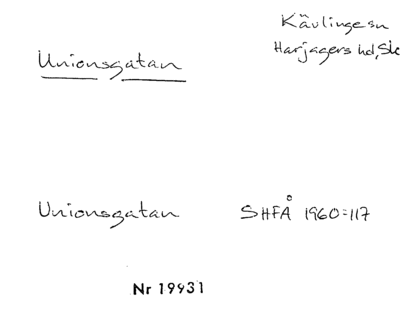 Kävlinge sn
Unionsgatan
Harjagers hd, Sk
Unionsgatan SHFÅ 1960:117
Nr 19931